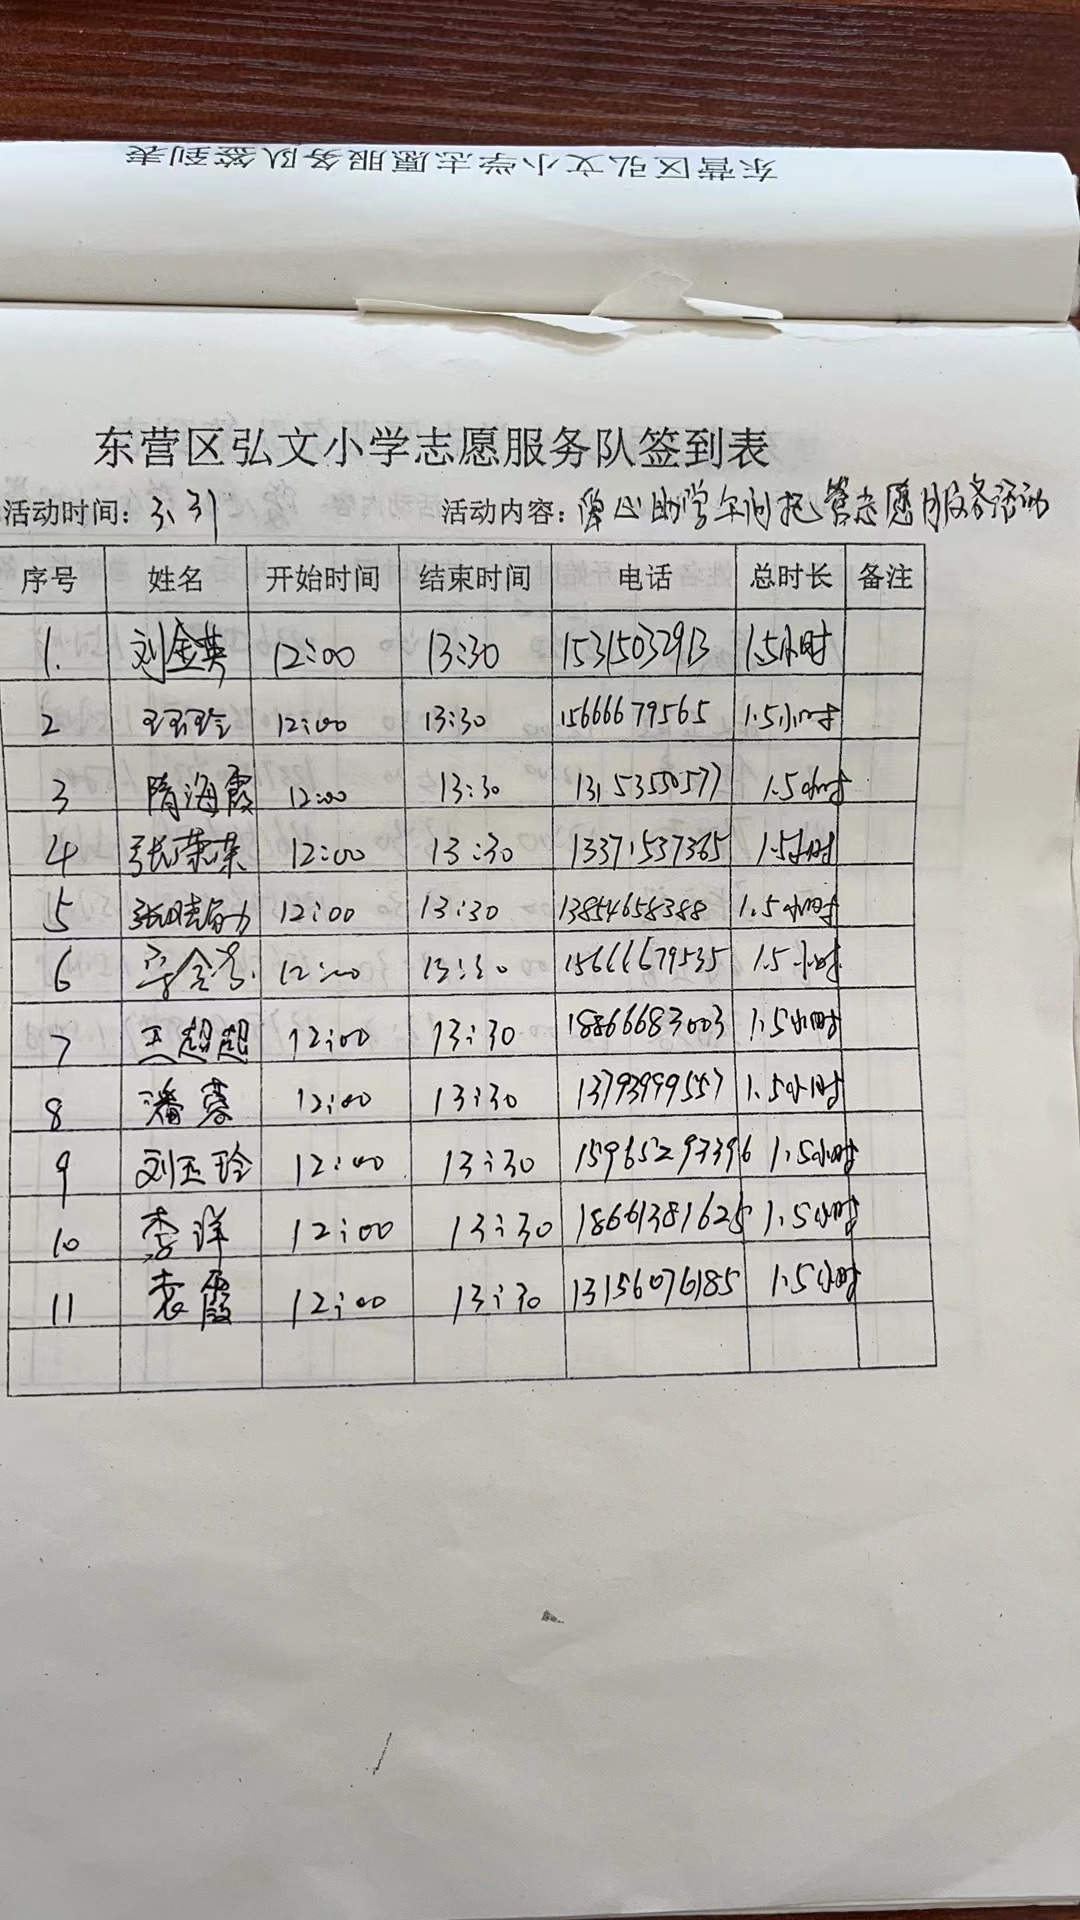 东营区弘文小学志愿服务队签到表
东营区弘文小学志愿服务队签到表
活动时间：3.31 活动内容：爱心助学午间托管志愿服务活动
序号 姓名 开始时间 结束时间 电话 总时长 备注
1. 刘金英 12:00 13:30 15315032913 1.5小时
2 王玉玲 12:00 13:30 15666679565 1.5小时
3 隋海霞 12:00 13:30 13153550577 1.5小时
4 张荣荣 12:00 13:30 13371537365 1.5小时
5 12:00 13:30 13854658388 1.5小时
6 12:00 13:30 15666679535 1.5小时
7 王超超 12:00 13:30 18866683003 1.5小时
8 潘蓉 12:00 13:30 13793999557 1.5小时
9 刘玉玲 12:00 13:30 15965297396 1.5小时
10 李洋 12:00 13:30 18661381625 1.5小时
11 袁霞 12:00 13:30 13156076185 1.5小时